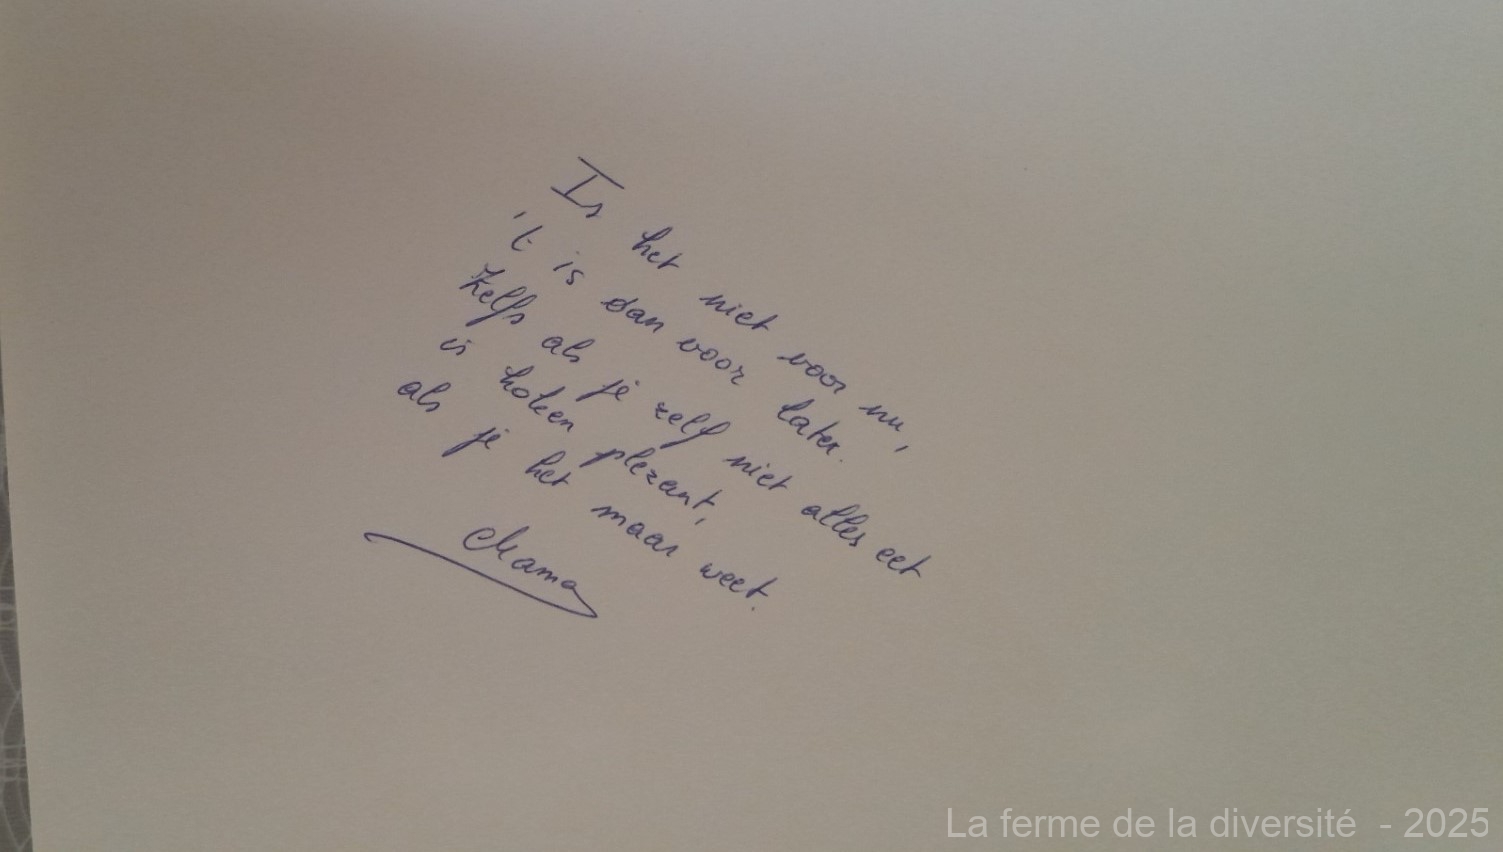 Is het niet voor nu,
't is dan voor later.
Zelfs als je zelf niet alles eet
is koken plezant,
als je het maar weet.
Mama
La ferme de la diversité - 2025